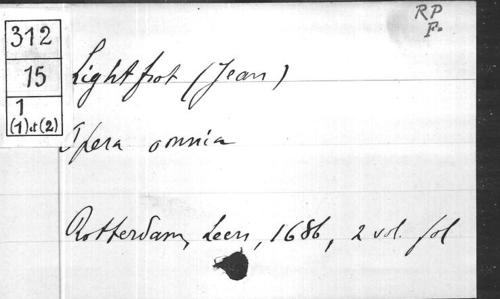 RP
F.
312
15
1
(1) et (2)
Lightfoot (Jean)
Opera omnia
Rotterdam, Leers, 1686, 2 vol. fol